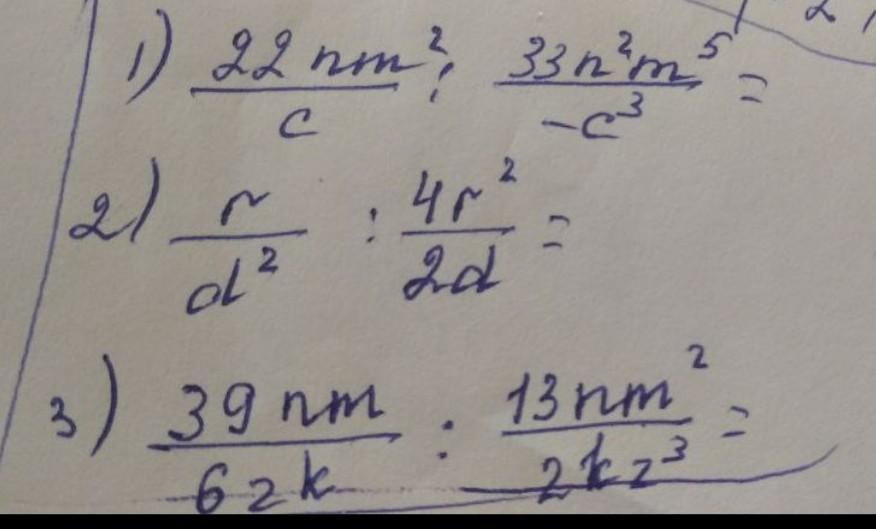 1) 22nm² / c : 33n²m⁵ / -c³ =
2) r / d² : 4r² / 2d =
3) 39nm / 6zk : 13nm² / 2kz³ =